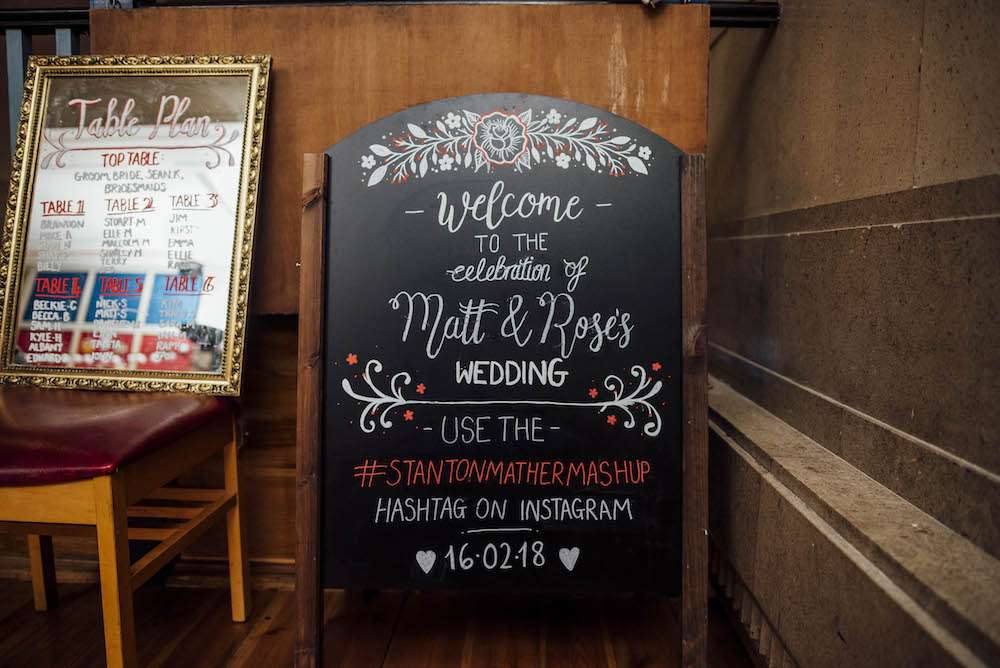 Table Plan
TOP TABLE:
GROOM, BRIDE, SEAN.K,
BRIDESMAIDS
TABLE 1
BRANDON
MIKE.R
BILLY
TABLE 2
STUART.M
ELLE.M
MALCOLM.M
SHIRLEY.M
TERRY
TABLE 3
JIM
KIRST
EMMA
ELLIE
TABLE 4
BECKIE-C
BECCA-B
SAM-H
KYLE-H
ALBANY
EDWARD
TABLE 5
NICK-S
MATT-S
TABITA
JOHN
TABLE 6
KIM
- Welcome -
TO THE
celebration of
Matt & Rose's
WEDDING
- USE THE -
#STANTONMATHERMASHUP
HASHTAG ON INSTAGRAM
16·02·18